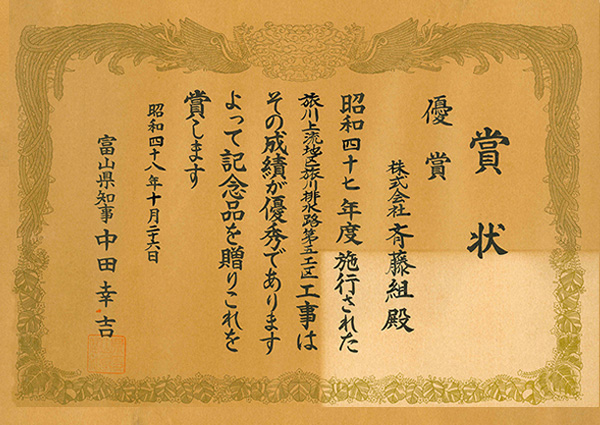 賞状
優賞
株式会社 斉藤組殿
昭和四十七年度施行された
旅川上流地区旅川排水路第五工区工事は
その成績が優秀であります
よって記念品を贈りこれを
賞します
昭和四十八年十月二十六日
富山県知事 中田幸吉